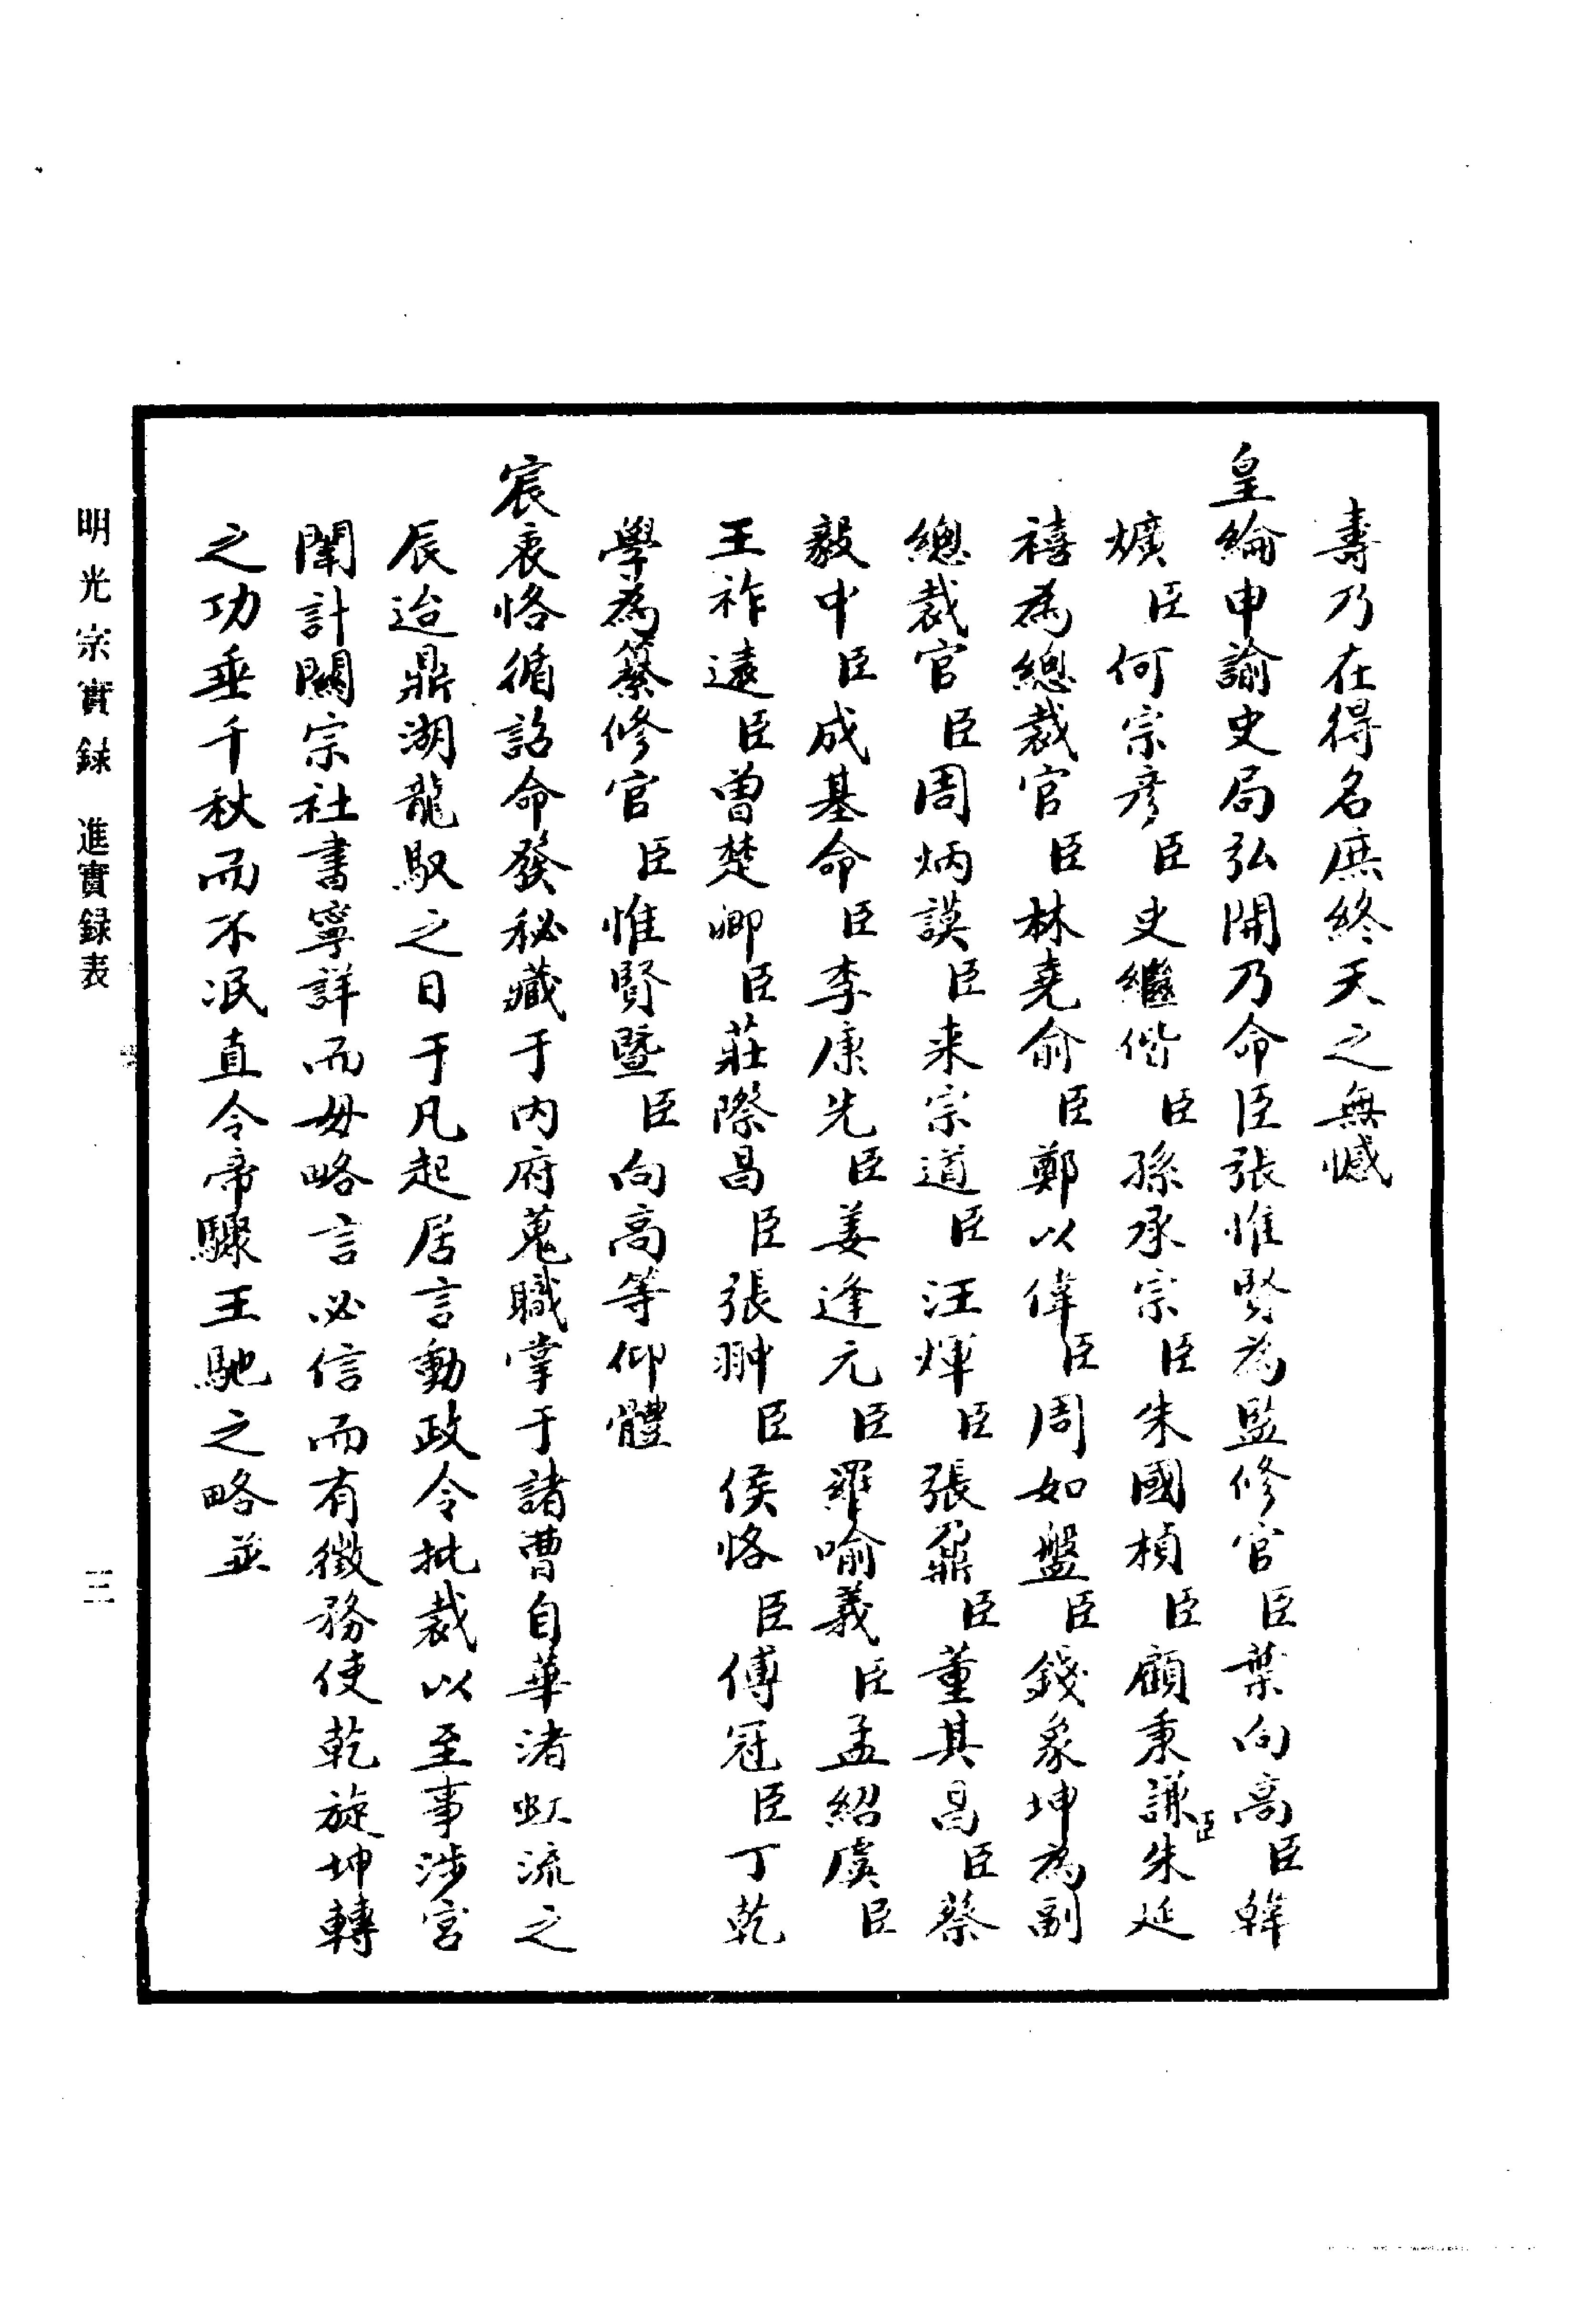 壽乃在得名庶終天之無憾
皇綸申諭史局弘開乃命臣張惟賢為監修官臣葉向高臣韓
爌臣何宗彥臣史繼偕臣孫承宗臣朱國楨臣顧秉謙臣朱延
禧為總裁官臣林堯俞臣鄭以偉臣周如盤臣錢象坤為副
總裁官臣周炳謨臣来宗道臣汪煇臣張鼐臣董其昌臣蔡
毅中臣成基命臣李康先臣姜逢元臣羅喻義臣孟紹虞臣
王祚遠臣曾楚卿臣莊際昌臣張翀臣侯恪臣傅冠臣丁乾
學為纂修官臣惟賢暨臣向高等仰體
宸衷恪循詔命發秘藏于内府蒐職掌于諸曹自華渚虹流之
辰迨鼎湖龍馭之日于凡起居言動政令批裁以至事涉宮
闈計關宗社書寧詳而毋略言必信而有徵務使乾旋坤轉
之功垂千秋而不泯直令帝驟王馳之略並
明光宗實録 進實録表
三